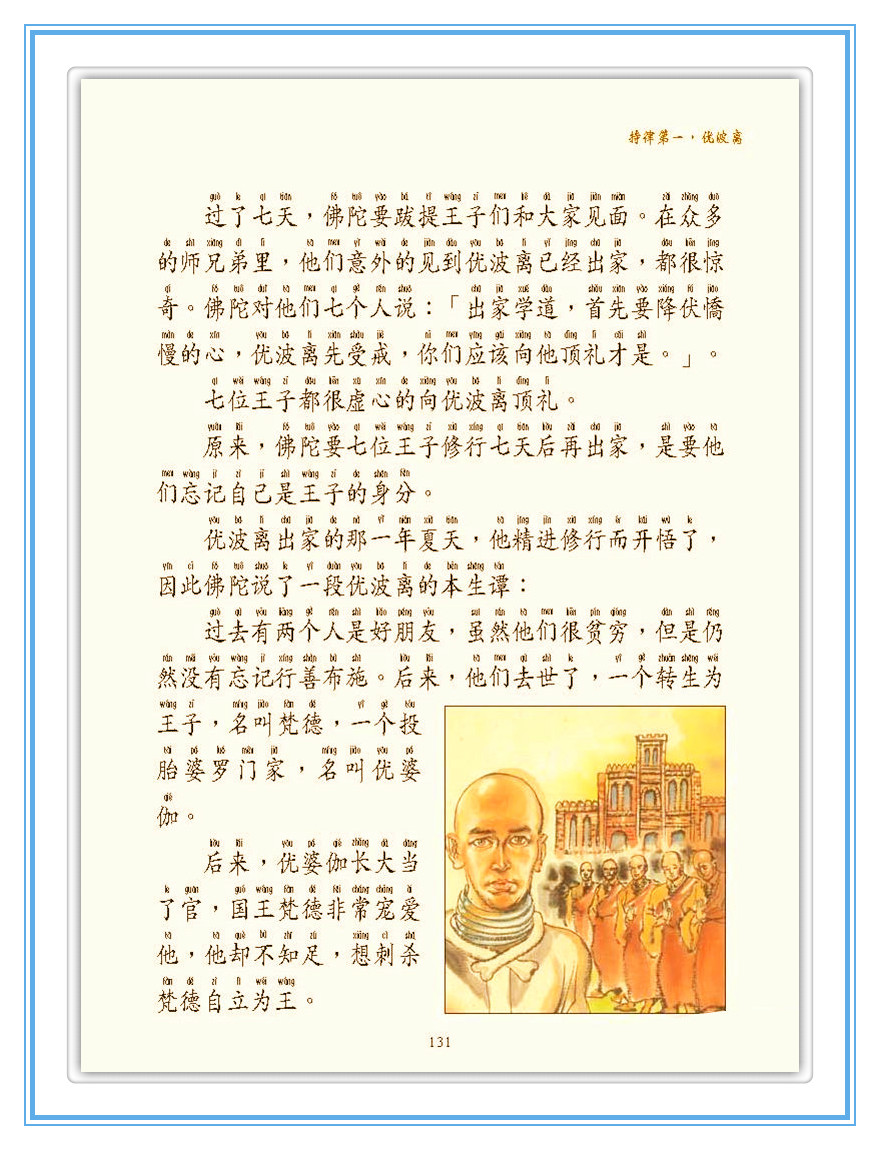 持律第一，优波离
过了七天，佛陀要跋提王子们和大家见面。在众多
的师兄弟里，他们意外的见到优波离已经出家，都很惊
奇。佛陀对他们七个人说：「出家学道，首先要降伏憍
慢的心，优波离先受戒，你们应该向他顶礼才是。」。
七位王子都很虚心的向优波离顶礼。
原来，佛陀要七位王子修行七天后再出家，是要他
们忘记自己是王子的身分。
优波离出家的那一年夏天，他精进修行而开悟了，
因此佛陀说了一段优波离的本生谭：
过去有两个人是好朋友，虽然他们很贫穷，但是仍
然没有忘记行善布施。后来，他们去世了，一个转生为
王子，名叫梵德，一个投
胎婆罗门家，名叫优婆
伽。
后来，优婆伽长大当
了官，国王梵德非常宠爱
他，他却不知足，想刺杀
梵德自立为王。
131